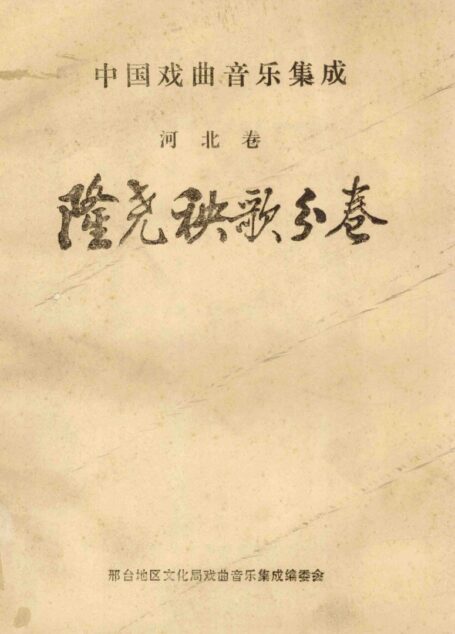 中国戏曲音乐集成
河北卷
隆尧秧歌分卷
邢台地区文化局戏曲音乐集成编委会